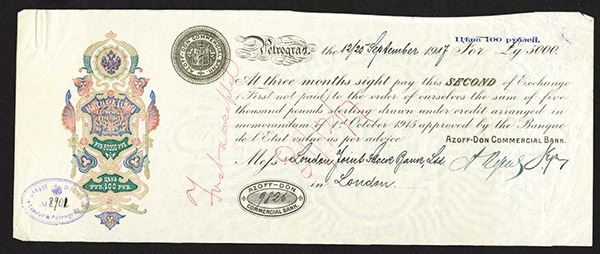 Цѣна 100 рублей.
AZOFF-DON COMMERCIAL BANK
Petrograd, the 12/25 September 1917 For £g 5000.
At three months sight pay this SECOND of Exchange
(First not paid) to the order of ourselves the sum of five
thousand pounds sterling drawn under credit arranged in
memorandum October 1915 approved by the Banque
de l'Etat value as per advice
AZOFF-DON COMMERCIAL BANK.
Messrs London Joint Stock Bank, Ltd
in London.
AZOFF-DON
9826
COMMERCIAL BANK
First accepted
РУБ. 50000 РУБ.
ЦѢНА
РУБ. 100 РУБ.
8901